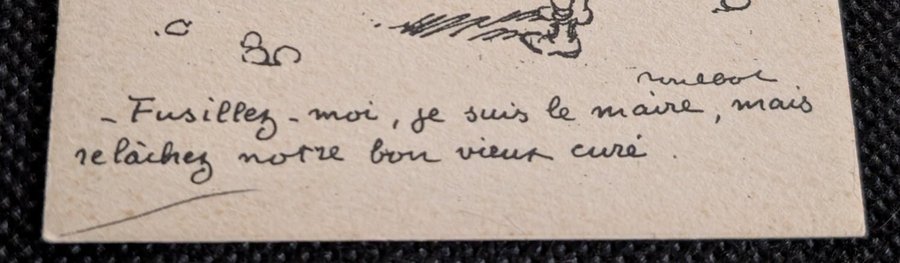 poulbot
- Fusillez-moi, je suis le maire, mais
relâchez notre bon vieux curé.